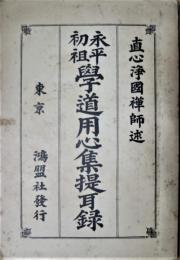 直心淨國禪師述
永平初祖學道用心集提耳録
東京 鴻盟社發行